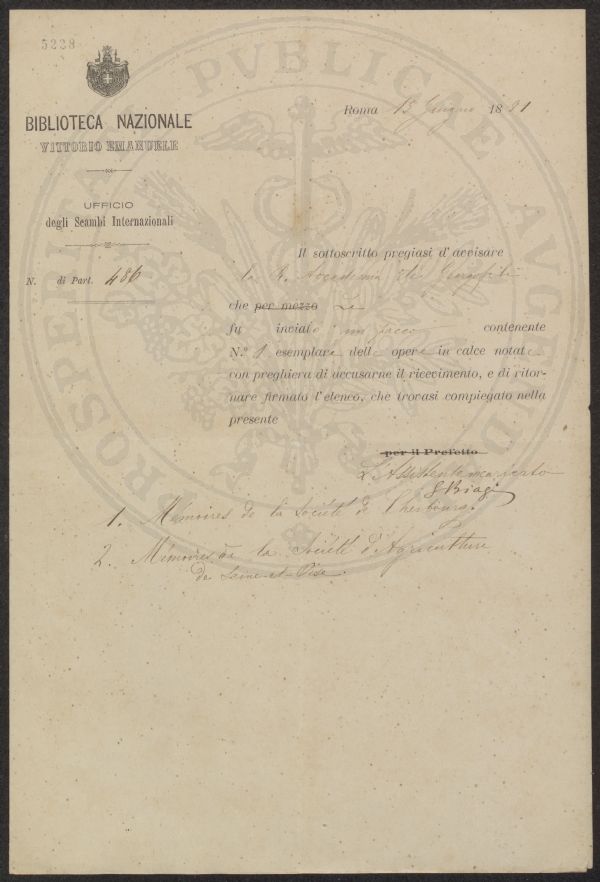 5228
Roma 13 Giugno 1881
BIBLIOTECA NAZIONALE
VITTORIO EMANUELE
UFFICIO
degli Scambi Internazionali
N. di Part. 486
Il sottoscritto pregiasi d'avvisare
la R. Accademia dei Georgofili
che per mezzo Le
fu inviato un pacco contenente
N.º 1 esemplare delle opere in calce notate
con preghiera di accusarne il ricevimento, e di ritor-
nare firmato l'elenco, che trovasi compiegato nella
presente
per il Prefetto
L'Assistente incaricato
G Biagi
1. Mémoires de la Société de Cherbourg.
2. Mémoires de la Société d'Agriculture
de Seine-et-Oise.
PROSPERITATI PVBLICAE AVGENDAE